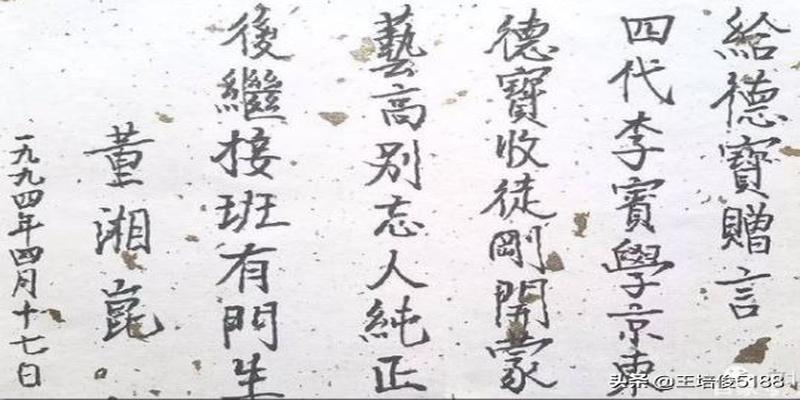 給德寶贈言
四代李賓學京東
德寶收徒剛開蒙
藝高别忘人純正
後繼接班有門生
董湘崑
一九九四年四月十七日
头条 @王培俊5188